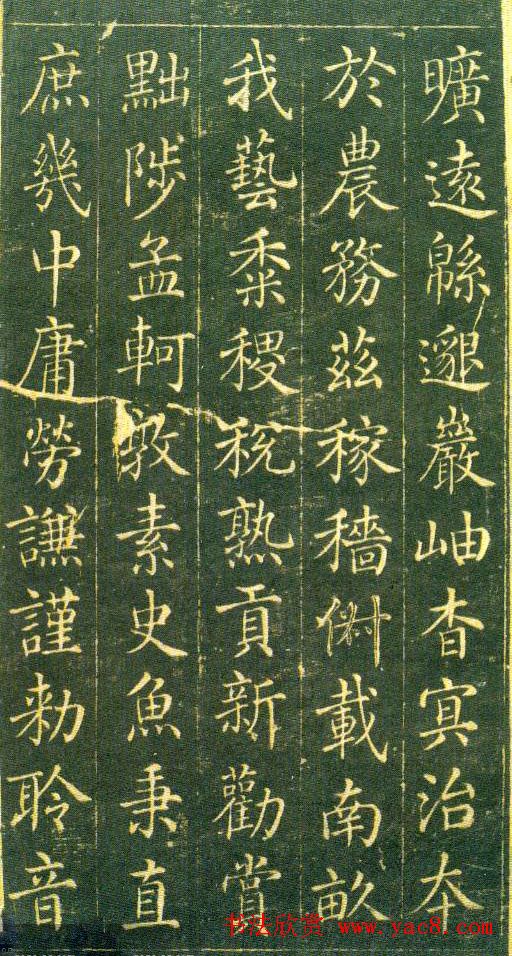 曠遠緜邈巖岫杳㝠治夲
於農務茲稼穡俶載南畝
我藝黍稷稅熟貢新勸賞
黜陟孟軻敦素史魚秉直
庶幾中庸勞謙謹勑聆音
书法欣赏 www.yac8.com